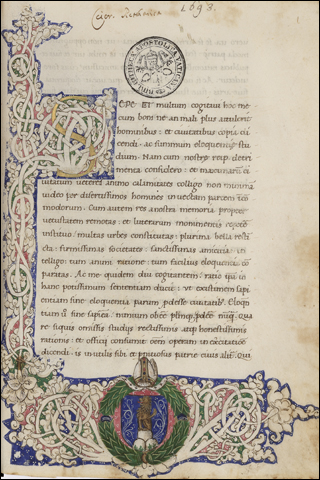 1693.
SEPE ET multum cogitavi hoc me
cum boni ne an mali plus attulerit
hominibus: et civitatibus copia di
cendi: ac summum eloquentie stu
dium. Nam cum nostre reip detri
menta considero: et maximarum ci
vitatum veteres animo calamitates colligo non minimam
video per disertissimos homines invectam partem incō
modorum. Cum autem res a nostra memoria propter
vetustatem remotas: et litterarum monumentis repeto
intelligo multas urbes constitutas: plurima bella restī
cta: firmissimas societates: sanctissimas amicitias: in
telligo: tum animi ratione: tum facilius eloquentia cō
paratas. Ac me quidem diu cogitantem: ratio ipsa in
hanc potissimum sententiam ducit: ut existimem sapi
entiam sine eloquentia parum prodesse civitatibus. Eloqn
tiam sine sapientia: nimium obesse
re siquis omissis studiis rectissimis atq honestissimis
rationis: et officij consumit oēm operam in exercitatione
dicendi: is inutilis sibi et pernitiosus patrie civis alitur. Qui